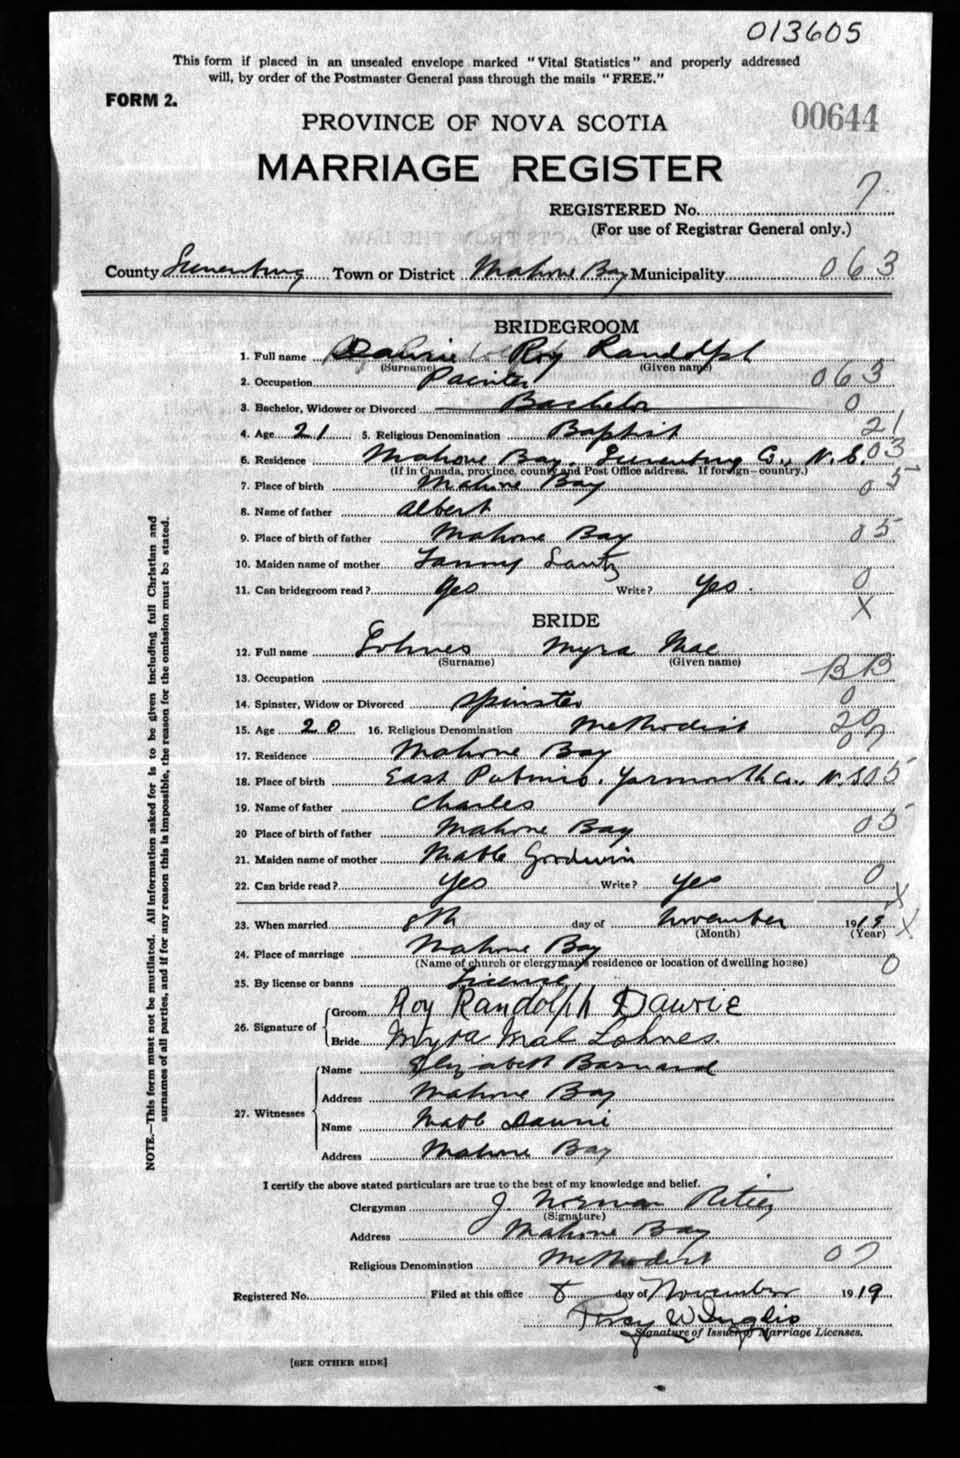 013605
This form if placed in an unsealed envelope marked "Vital Statistics" and properly addressed
will, by order of the Postmaster General pass through the mails "FREE."
FORM 2.
00644
PROVINCE OF NOVA SCOTIA
MARRIAGE REGISTER
REGISTERED No. 7
(For use of Registrar General only.)
County Lunenburg Town or District Mahone Bay Municipality 063
BRIDEGROOM
1. Full name Daurie Roy Randolph
(Surname) (Given name)
2. Occupation Painter 063
3. Bachelor, Widower or Divorced Bachelor 0
4. Age 21 5. Religious Denomination Baptist 21
6. Residence Mahone Bay, Lunenburg Co., N.S. 03
(If in Canada, province, county and Post Office address. If foreign—country.)
7. Place of birth Mahone Bay 05
8. Name of father Albert
9. Place of birth of father Mahone Bay 05
10. Maiden name of mother Fanny Lantz
11. Can bridegroom read? Yes Write? Yes. 0
X
BRIDE
12. Full name Lohnes Myra Mae
(Surname) (Given name)
13. Occupation BB
14. Spinster, Widow or Divorced Spinster 0
15. Age 20 16. Religious Denomination Methodist 20
17. Residence Mahone Bay 07
18. Place of birth East Pubnico, Yarmouth Co., N.S. 05
19. Name of father Charles
20 Place of birth of father Mahone Bay 05
21. Maiden name of mother Mable Goodwin
22. Can bride read? Yes Write? Yes 0
X
23. When married 8th day of November 1919 X
(Month) (Year)
24. Place of marriage Mahone Bay 0
(Name of church or clergyman's residence or location of dwelling house)
25. By license or banns License
26. Signature of Groom Roy Randolph Daurie
Bride Myra Mae Lohnes.
27. Witnesses Name Elizabeth Barnard
Address Mahone Bay
Name Mable Daurie
Address Mahone Bay
I certify the above stated particulars are true to the best of my knowledge and belief.
Clergyman J. Norman Ritcey
(Signature)
Address Mahone Bay
Religious Denomination Methodist 07
Registered No. Filed at this office 8 day of November 1919
Percy W Inglis
Signature of Issuer of Marriage Licenses.
[SEE OTHER SIDE]
NOTE.—This form must not be mutilated. All information asked for is to be given including full Christian and
surnames of all parties, and if for any reason this is impossible, the reason for the omission must be stated.